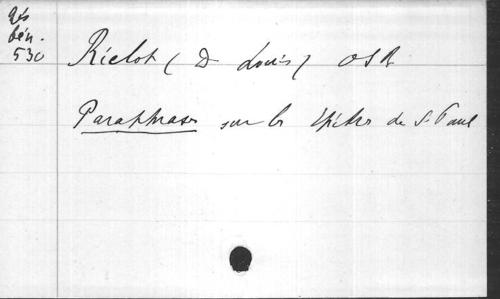 Rés
bén.
530
Riclot (D Louis) OSB
Paraphrases sur les Epitres de S. Paul